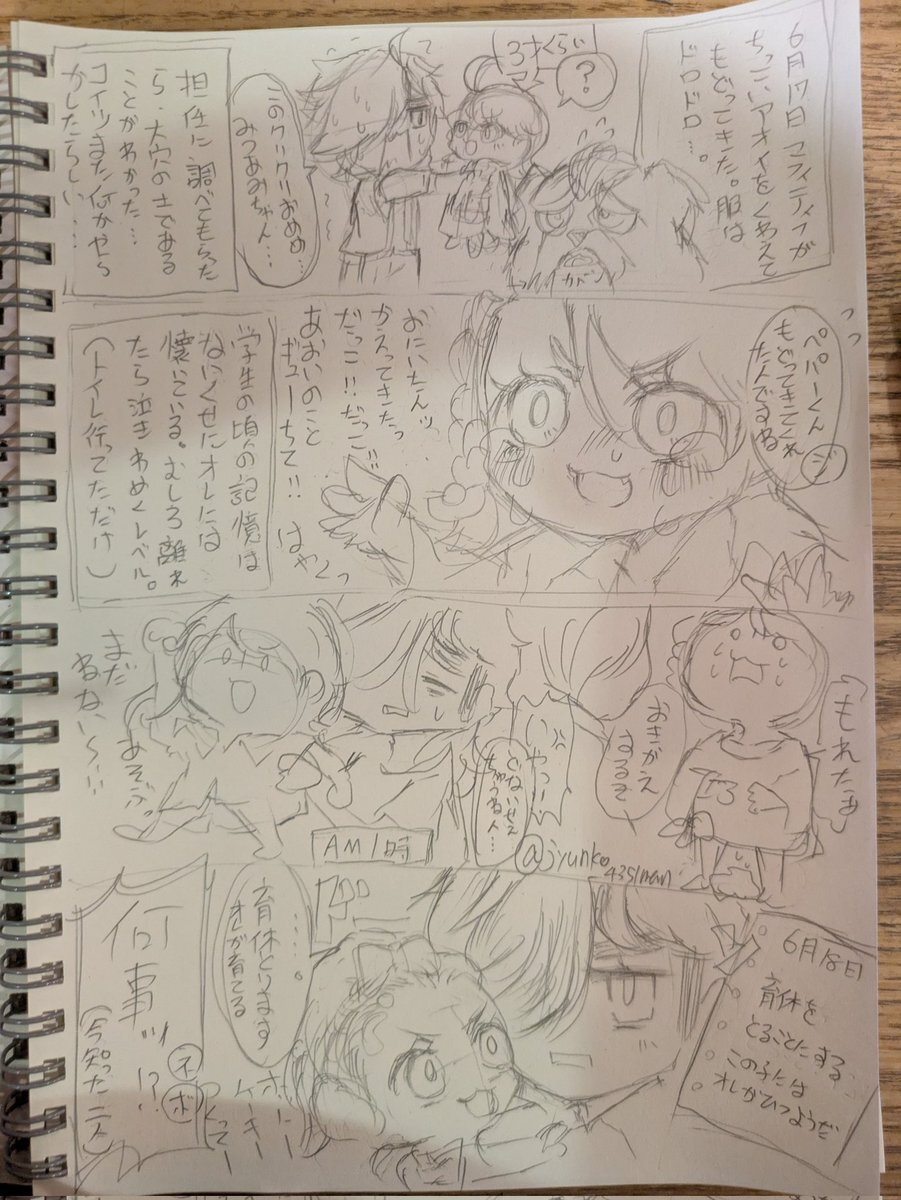 6月17日 マフィティフが
ちっこいアオイをくわえて
もどってきた。服は
ドロドロ…。
3才くらい
?
ガバ
このクリクリおめめ…
みつあみちゃん…
担任に調べてもらった
ら、大穴の土である
ことがわかった…
コイツまた何かやら
かしたらしい…
ペパーくん
もどってきてくれ
たんでするね
ジ
おにいたんッ
かえってきたっ
だっこ!!だっこ!!
あおいのこと
ギューちて!! はやくっ
学生の頃の記憶は
ないくせにオレには
懐いている。むしろ離れ
たら泣きわめくレベル。
(トイレ行ってただけ)
(もれたぁ)
おきがえ
するぞ
いやっ
AM1時
まだ
ねない〜!!
あそぶ
@jyunko_4351man
6月18日
育休を
とることにする
この子には
オレがひつようだ
……。
育休とります
オレが育てる
ホットケーキ
つくってー
何事ッ!?
ネ
ボ
(今知った二人)